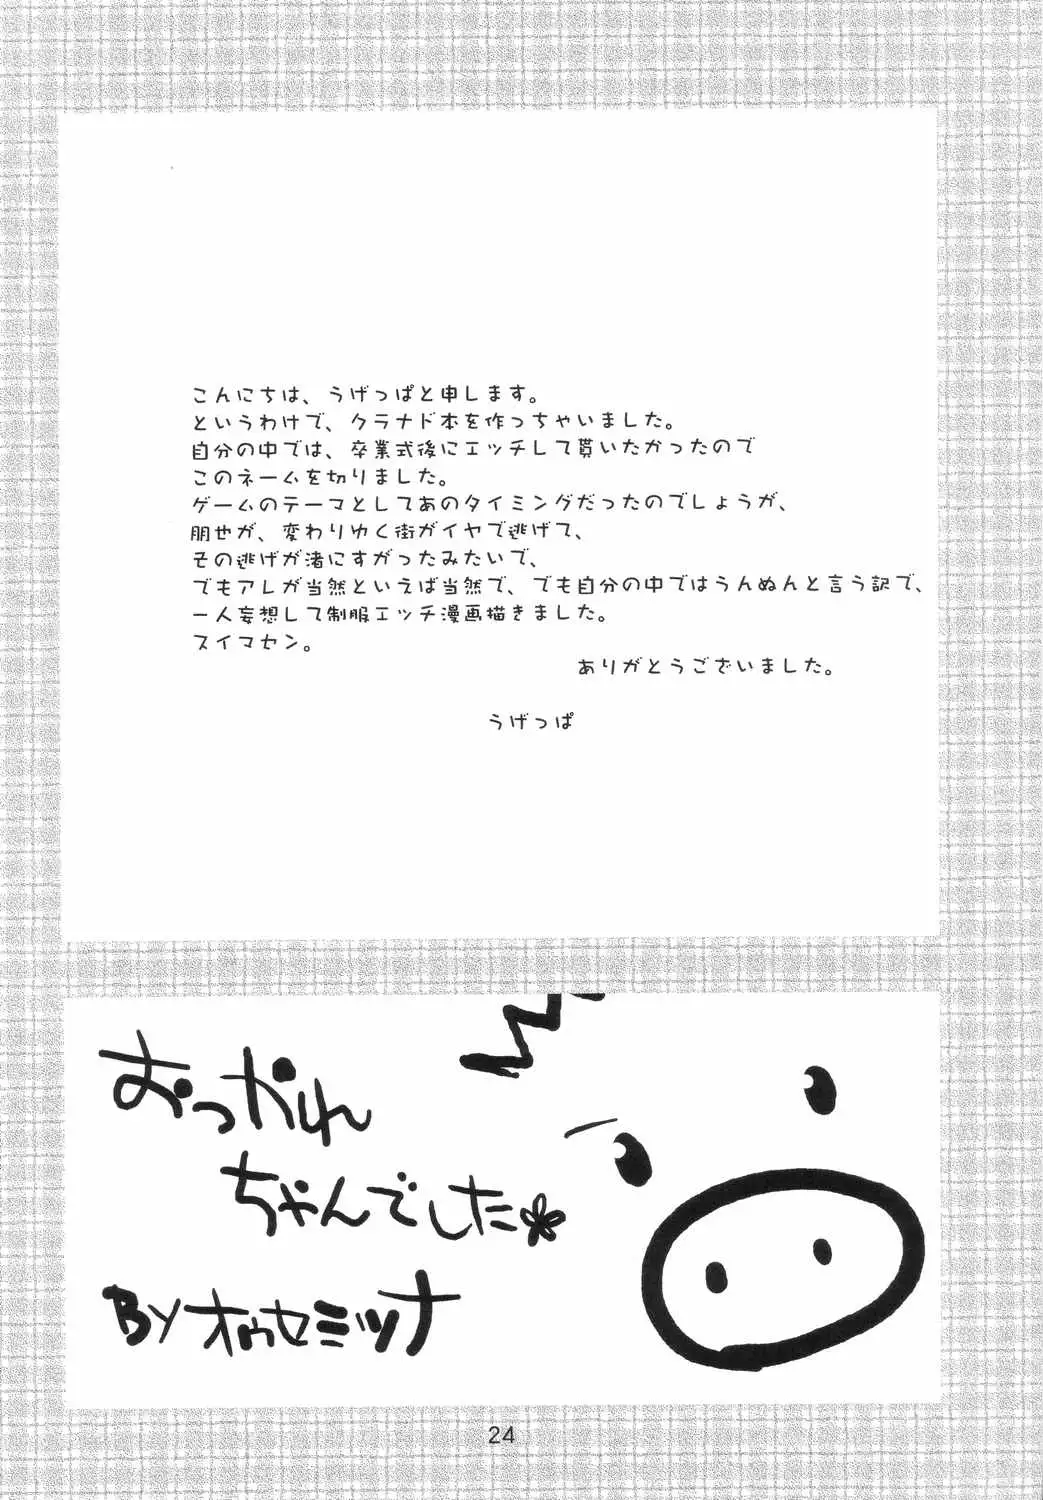 こんにちは、うげっぱと申します。
というわけで、クラナド本を作っちゃいました。
自分の中では、卒業式後にエッチして貰いたかったので
このネームを切りました。
ゲームのテーマとしてあのタイミングだったのでしょうが、
朋也が、変わりゆく街がイヤで逃げて、
その逃げが渚にすがったみたいで、
でもアレが当然といえば当然で、でも自分の中ではうんぬんと言う訳で、
一人妄想して制服エッチ漫画描きました。
スイマセン。
ありがとうございました。
うげっぱ
おっかれ
ちゃんでした
BYオゥセミツナ
24